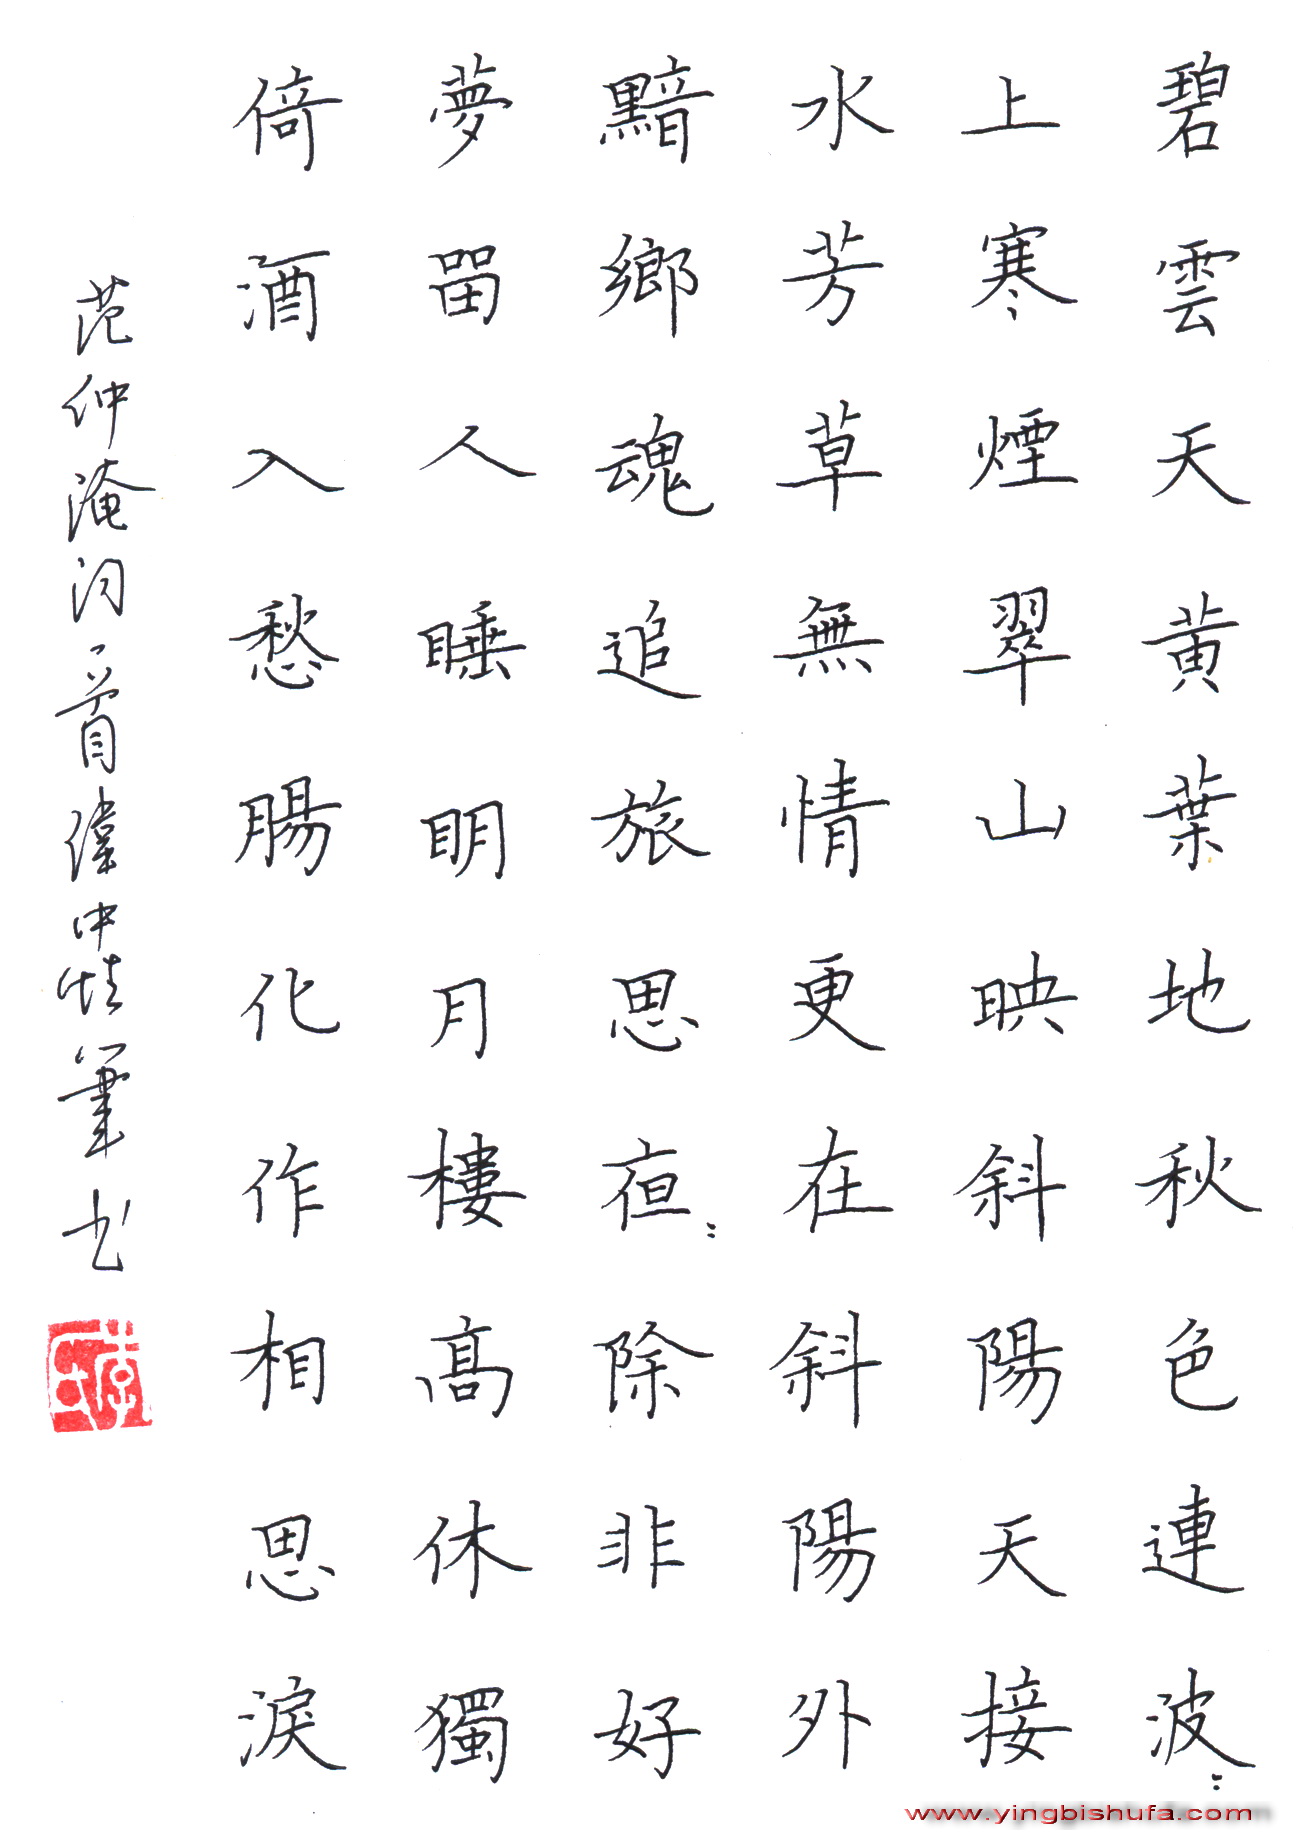 碧雲天黃葉地秋色連波：
上寒煙翠山映斜陽天接
水芳草無情更在斜陽外
黯鄉魂追旅思亱：除非好
夢留人睡明月樓高休獨
倚酒入愁腸化作相思淚
范仲淹词一首偉中筆书
www.yingbishufa.com